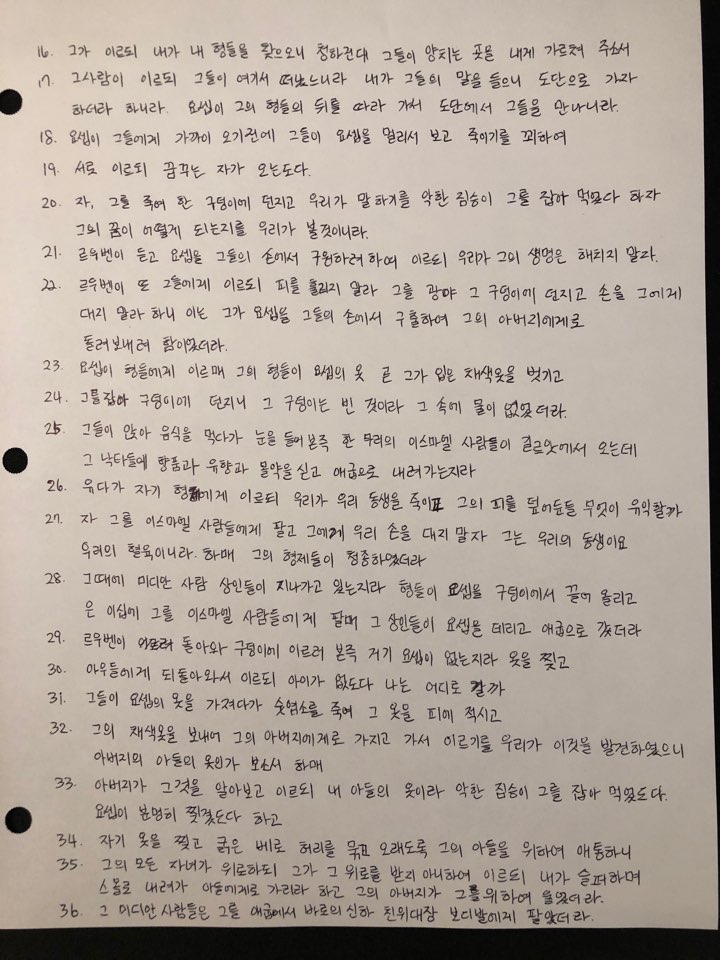 16. 그가 이르되 내가 내 형들을 찾으오니 청하건대 그들이 양치는 곳을 내게 가르쳐 주소서
17. 그사람이 이르되 그들이 여기서 떠났느니라 내가 그들의 말을 들으니 도단으로 가자
하더라 하니라. 요셉이 그의 형들의 뒤를 따라 가서 도단에서 그들을 만나니라.
18. 요셉이 그들에게 가까이 오기전에 그들이 요셉을 멀리서 보고 죽이기를 꾀하여
19. 서로 이르되 꿈꾸는 자가 오는도다.
20. 자, 그를 죽여 한 구덩이에 던지고 우리가 말하기를 악한 짐승이 그를 잡아 먹었다 하자
그의 꿈이 어떻게 되는지를 우리가 볼것이니라.
21. 르우벤이 듣고 요셉을 그들의 손에서 구원하려하여 이르되 우리가 그의 생명은 해치지 말라.
22. 르우벤이 또 그들에게 이르되 피를 흘리지 말라 그를 광야 그 구덩이에 던지고 손을 그에게
대지 말라 하니 이는 그가 요셉을 그들의 손에서 구출하여 그의 아버지에게로
돌려보내려 함이었더라.
23. 요셉이 형들에게 이르매 그의 형들이 요셉의 옷 곧 그가 입은 채색옷을 벗기고
24. 그를잡아 구덩이에 던지니 그 구덩이는 빈 것이라 그 속에 물이 없었더라.
25. 그들이 앉아 음식을 먹다가 눈을 들어본즉 한 무리의 이스마엘 사람들이 길르앗에서 오는데
그 낙타들에 향품과 유향과 몰약을 싣고 애굽으로 내려가는지라
26. 유다가 자기 형제에게 이르되 우리가 우리 동생을 죽이고 그의 피를 덮어둔들 무엇이 유익할까
27. 자 그를 이스마엘 사람들에게 팔고 그에게 우리 손을 대지 말자 그는 우리의 동생이요
우리의 혈육이니라. 하매 그의 형제들이 청종하였더라
28. 그때에 미디안 사람 상인들이 지나가고 있는지라 형들이 요셉을 구덩이에서 끌어 올리고
은 이십에 그를 이스마엘 사람들에게 팔매 그 상인들이 요셉을 데리고 애굽으로 갔더라
29. 르우벤이 돌아와 구덩이에 이르러 본즉 거기 요셉이 없는지라 옷을 찢고
30. 아우들에게 되돌아와서 이르되 아이가 없도다 나는 어디로 갈까
31. 그들이 요셉의 옷을 가져다가 숫염소를 죽여 그 옷을 피에 적시고
32. 그의 채색옷을 보내어 그의 아버지에게로 가지고 가서 이르기를 우리가 이것을 발견하였으니
아버지의 아들의 옷인가 보소서 하매
33. 아버지가 그것을 알아보고 이르되 내 아들의 옷이라 악한 짐승이 그를 잡아 먹었도다.
요셉이 분명히 찢겼도다 하고
34. 자기 옷을 찢고 굵은 베로 허리를 묶고 오래도록 그의 아들을 위하여 애통하니
35. 그의 모든 자녀가 위로하되 그가 그 위로를 받지 아니하여 이르되 내가 슬퍼하며
스올로 내려가 아들에게로 가리라 하고 그의 아버지가 그를위하여 울었더라.
36. 그 미디안사람들은 그를 애굽에서 바로의신하 친위대장 보디발에게 팔았더라.